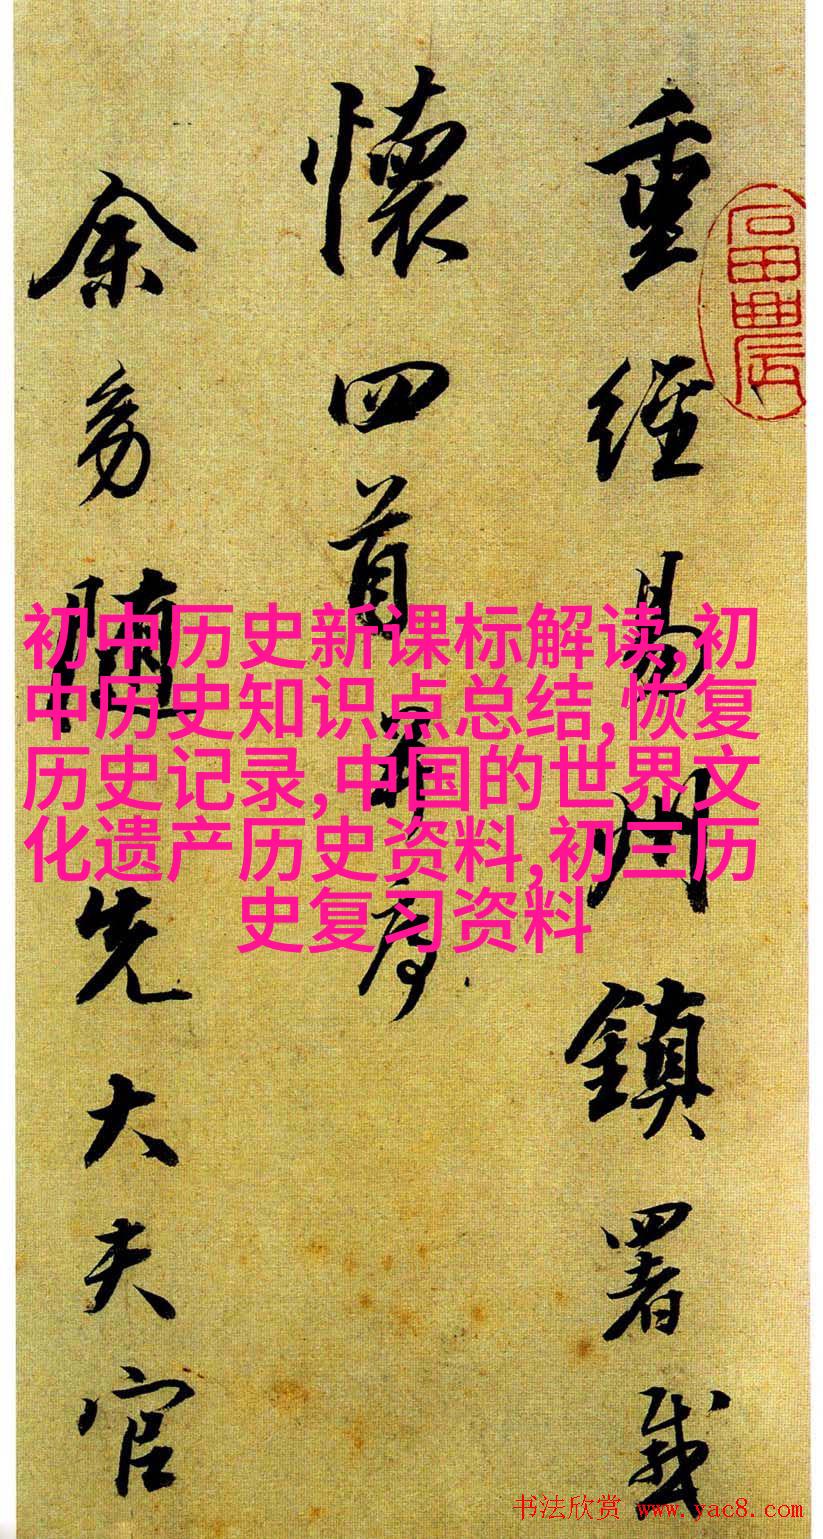 重經易州鎮署感
懷四首并序
余幼隨先大夫官
初中历史新课标解读,初
中历史知识点总结,恢复
历史记录,中国的世界文
化遗产历史资料,初三历
史复习资料
书法欣赏 www.yac8.com